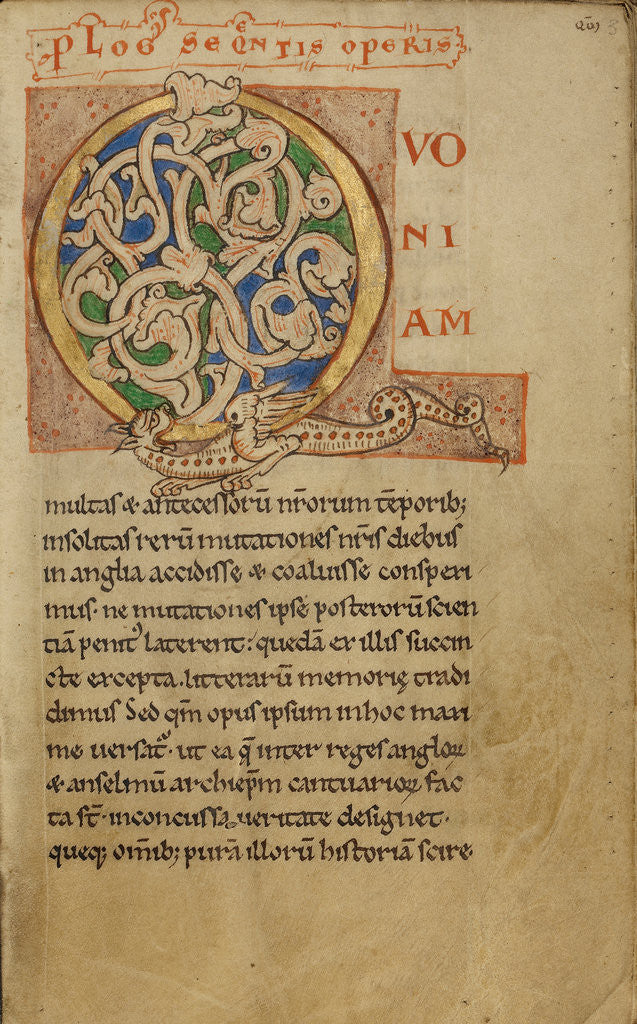 PLOGꝰ SEQNTIS OPERIS
QVO
NI
AM
multas & antecessorū nr̄orum tēporib;
insolitas rerū mutationes nr̄is diebus
in anglia accidisse & coaluisse conspexi
mus· ne mutationes ipsę posterorū scien
tiā penitꝰ laterent: quedā ex illis succin
cte excepta. litterarū memorię tradi
dimus Sed qm̄ opus ipsum in hoc maxi
me uersat᷑· ut ea q̄ inter reges angloꝝ
& anselmū archiep̄m cantuarioꝝ fac
ta st̄· inconcussa ueritate designet·
queq; om̄ib; purā illorū historiā scire